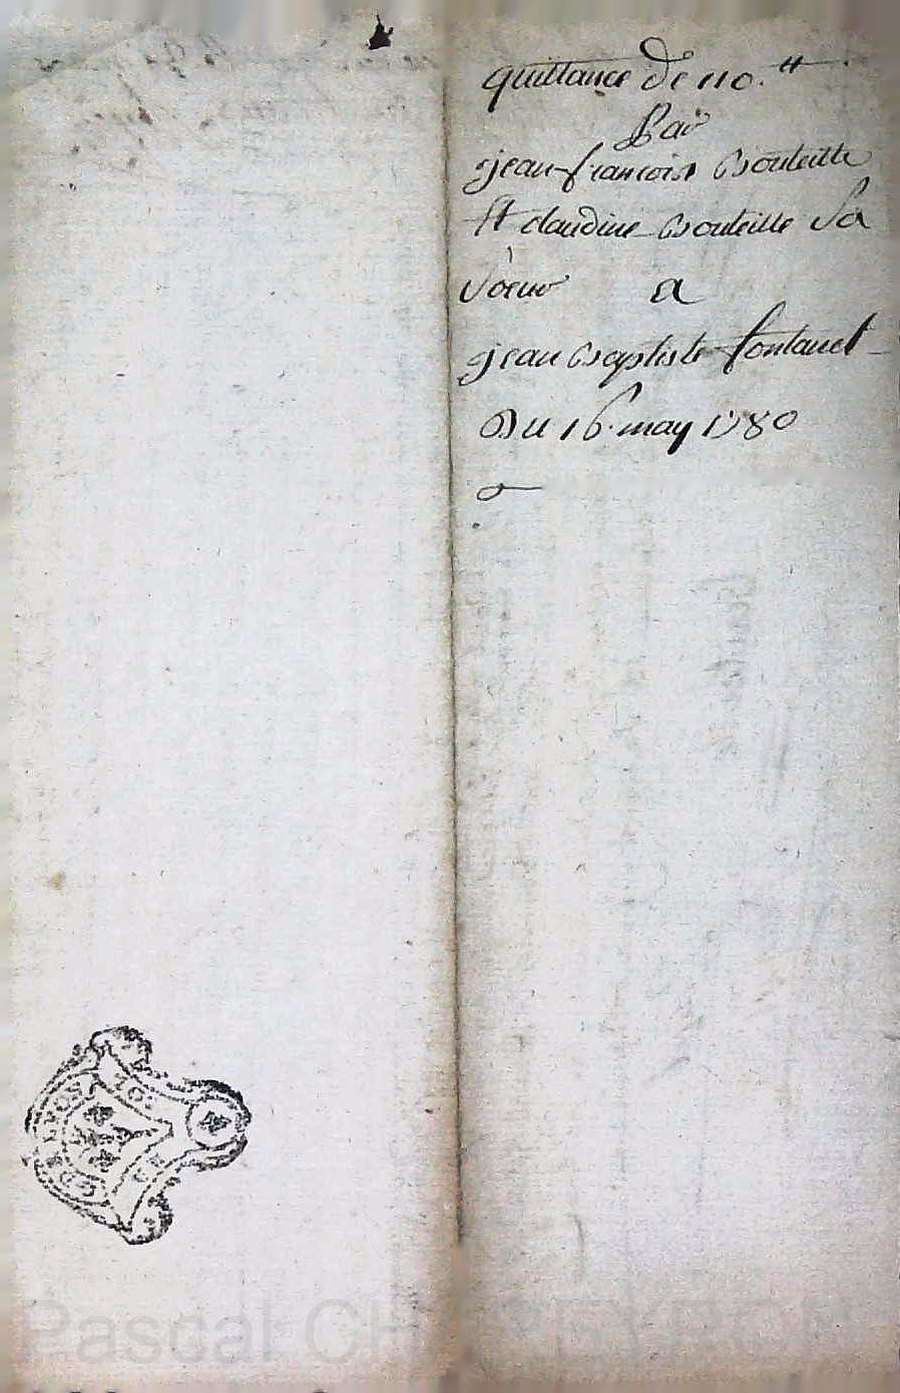 quittance de 110.tt
Par
jean françois Bouteille
Et claudine Bouteille Sa
Soeur a
jean Baptiste fontanel
Du 16. may 1780
DE LYON
Pascal CH